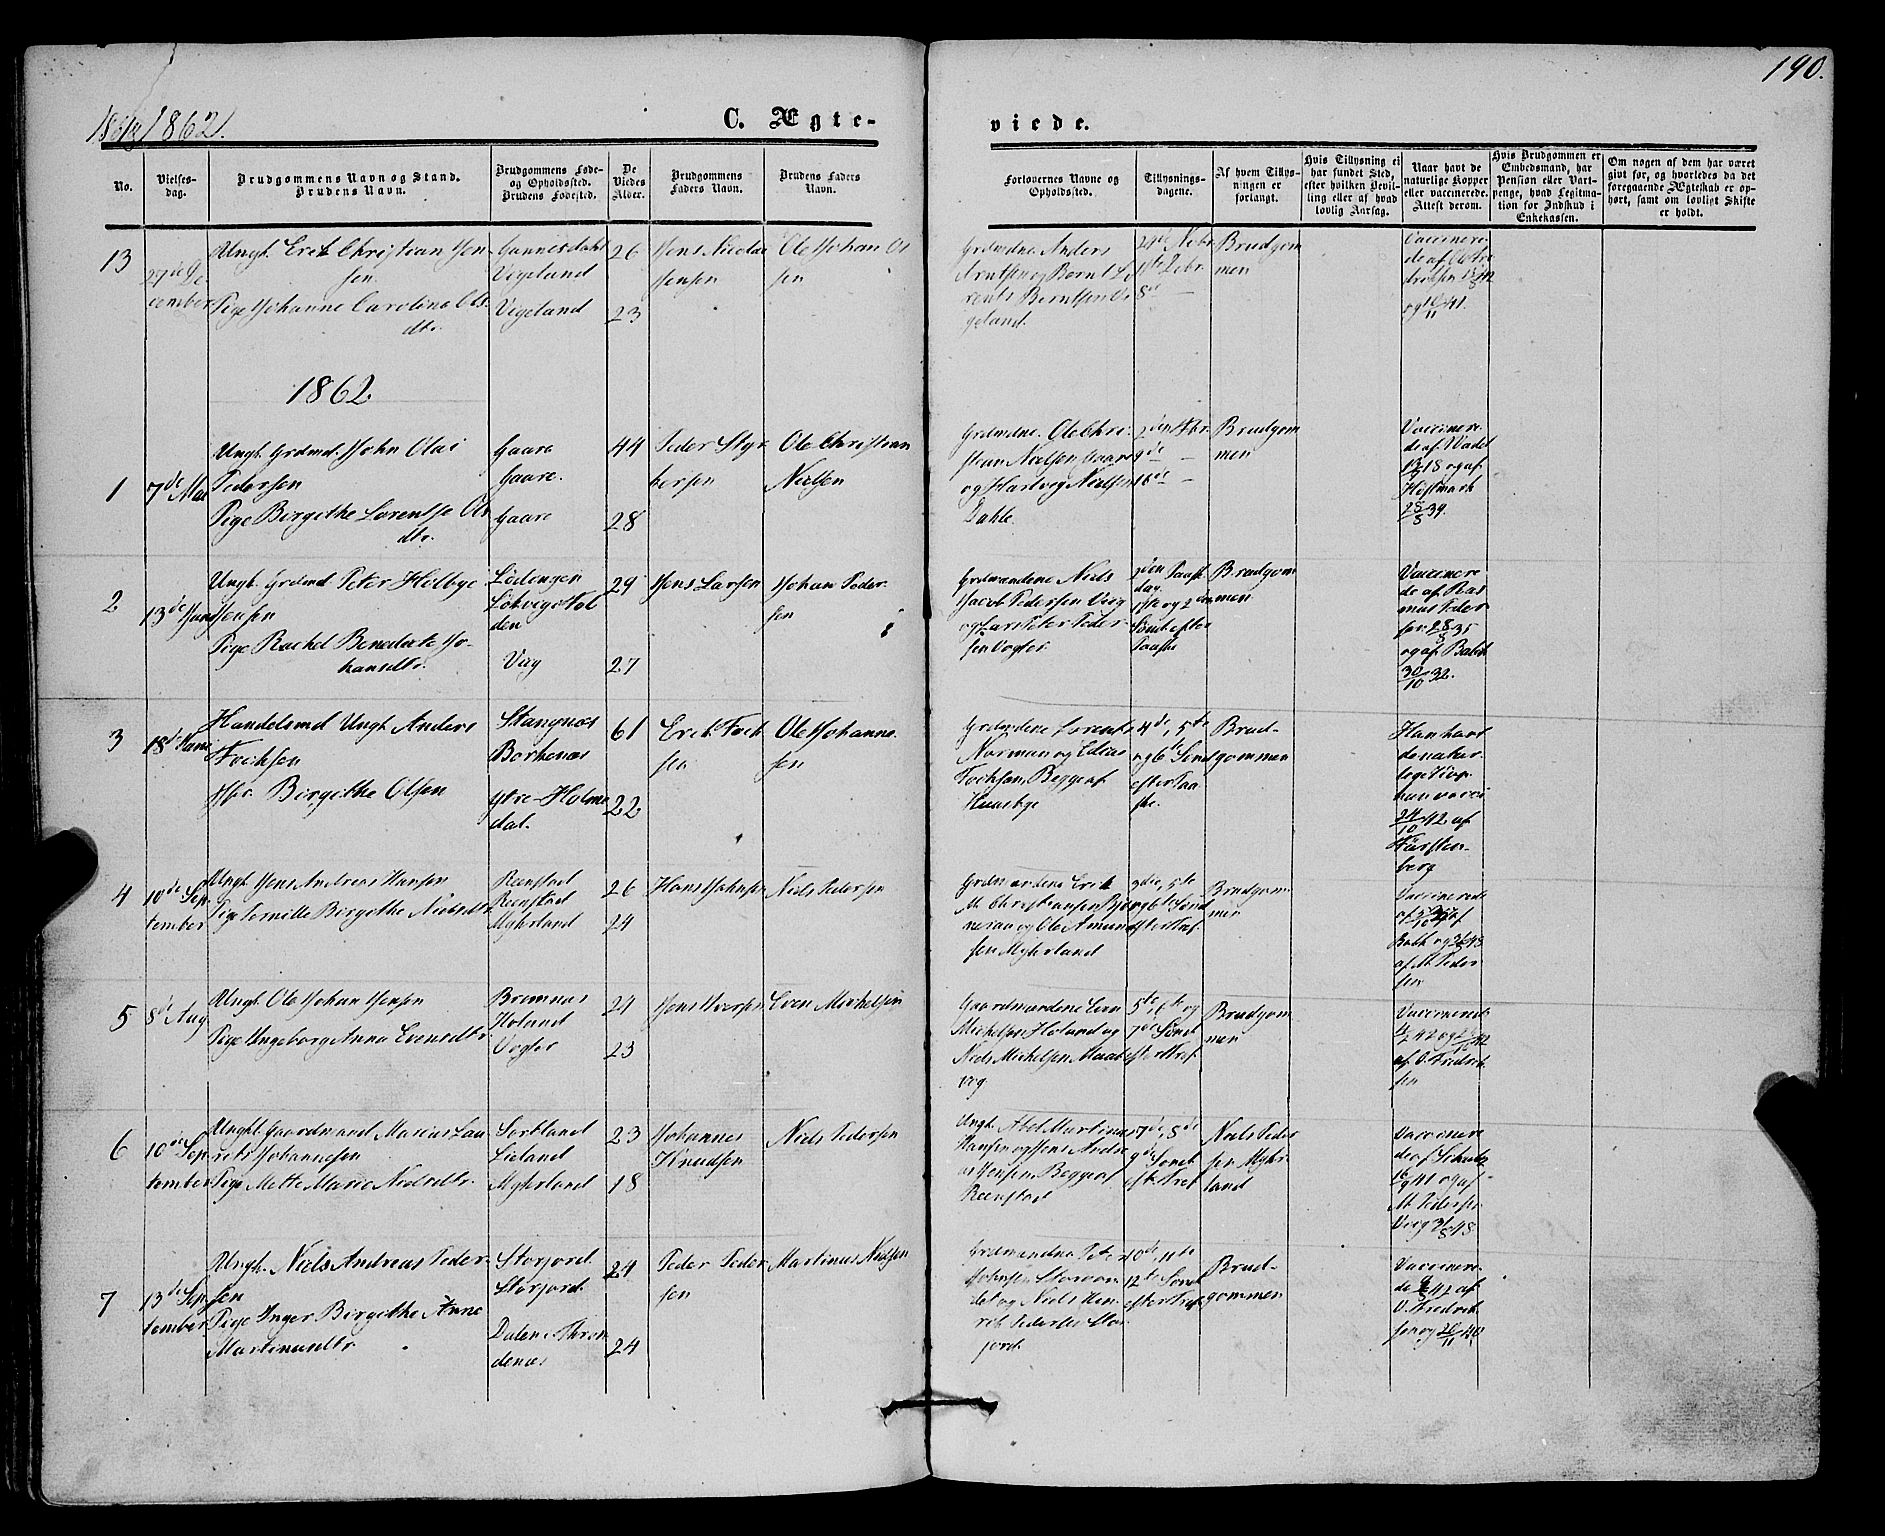 190.
1861/1862.
C. Ægte-
viede.
No.
Vielses-
dag.
Brudgommens Navn og Stand.
Brudens Navn.
Brudgommens Føde-
og Opholdssted.
Brudens Fødested.
De
Viedes
Alder.
Brudgommens
Faders Navn.
Brudens Faders
Navn.
Forlovernes Navne og
Opholdssted.
Tillysnings-
dagene.
Af hvem Tillys-
ningen er
forlangt.
Hvis Tillysning ei
har fundet Sted,
efter hvilken Bevil-
ling eller af hvad
lovlig Aarsag.
Naar havt de
naturlige Kopper
eller vaccinerede.
Attest derom.
Hvis Brudgommen er
Embedsmand, har
Pension eller Vart-
penge, hvad Legitima-
tion for Indskud i
Enkekassen.
Om nogen af dem har været
givt før, og hvorledes da det
foregaaende Ægteskab er op-
hørt, samt om lovligt Skifte
er holdt.
13
27de De
cember
Ungk. Erik Christian Jen
sen
Pige Johanne Carolina Ols
dtr.
Vigeland
Vigeland
26
23
Jens Nicolai
Jensen
Ole Johan Ol
sen
Grdmdne Anders
Arntsen og Bernt Lo
rents Berntsen Vi
geland.
1ste Debr.
8de —
Brudgom
men
Vaccinere
de af
og 41.
1862.
1
7de Mai
Ungk. Grdmd. John Olai
Pedersen
Pige Birgithe Lorentse Ols
dtr.
Gaare
Gaare.
Gaare
44
28
Peder Styr
kersen
Ole Christian
Nielsen
Grdmdne. Ole Chri
stian Nielsen Gaare
og Hartvig Nielsen
Dahle.
9de —
16de —
Brudgom
men
Vaccinere
de af
18 og af
Hestmark
28/8 39.
2
13de Juni
Ungk. Grdmd Peter Helbye
Jensen
Pige Rachel Benedicte Jo-
hansdtr.
Lødingen
den
Vaag
29
27
Jens Larsen
Johan Peder
sen
Grdmændene Niels
Jacob Pedersen Vaag
og Lars Peter Peder
sen Vogter
2den Paaske
dag
1ste og 2den
Sønd. efter
Paaske
Brudgom
men
Vaccinere
de af Ras
mus Peder
sen 28/8 35
og af
30/10 32.
3
18de Juni
Handelsmd Ungk. Anders
Fochsen
Jfr. Birgithe Olsen
Stangnæs
Borkenæs
Ytre-Holme
dal.
61
22
Erik Foch
sen
Ole Johanne
sen
Grdmdne Lorents
Norman og Edias
Fochsen Begge af
Husebye
4de, 5te
og 6te Sønd
efter Paa
ske.
Brud-
gommen
Han havt
de natur
lige Kop.
hun vacci
24/10 42 af
Fürsten-
berg
4
10de Sep
tember
Ungk. Jens Andreas Hansen
Pige Pernille Birgithe Nielsdtr
Reenstad
Reenstad
Myhrland
26
24
Hans Johnsen
Niels Pedersen
Grdmændene Erik
M. Christiansen
og Ole Amund
sen Myhrland
3die, 5te
og 6te Sønd
efter Tref.
Brudgom
men
Vaccinerede
af
og 48
af M. Peder
sen
5
8de Aug
Ungk. Ole Johan Jensen
Pige Ingeborg Anna Evensdtr
Bremnæs
Holand
Vogter
24
23
Jens Iversen
Even Mikkelsen
Gaardmændene Even
Mikkelsen Holand og
Niels Mikkelsen
vog
5te, 6te og
7de Sønd
efter Tref
Brudgom
men
Vaccinerede
42 og
af O. Fredrik
sen
6
10de Sep
tember
Ungk. Gaardmand Marius Lau
rits Johannesen
Pige Mette Marie Nielsdtr.
Sortland
Liland
Myhrland
23
18
Johannes
Knudsen
Niels Pedersen
Ungk. Abel Martinus
Hansen og Jens Andre
as Jensen Begge af
Reenstad
7de, 8de
9de Sønd
eft Tref
Niels Peder
sen Myhr
land
Vaccinere
de af Schults
41 og af
M. Pedersen
Vaag 48
7
13de Sep
tember
Ungk. Niels Andreas Peder
sen
Pige Inger Birgithe Anne
Martinusdtr.
Storjord.
Storjord.
Dalen i Thron
denæs
24
24
Peder Peder
sen
Martinus Nielsen
Grdmændene Peter
Johnsen
og Niels Hen
rik Pedersen Stor
jord.
10de, 11te
12te Sønd
efter Tref
Brud-
gommen
Vaccinere
de 42 af
O. Fredrik
sen og 20/11 40